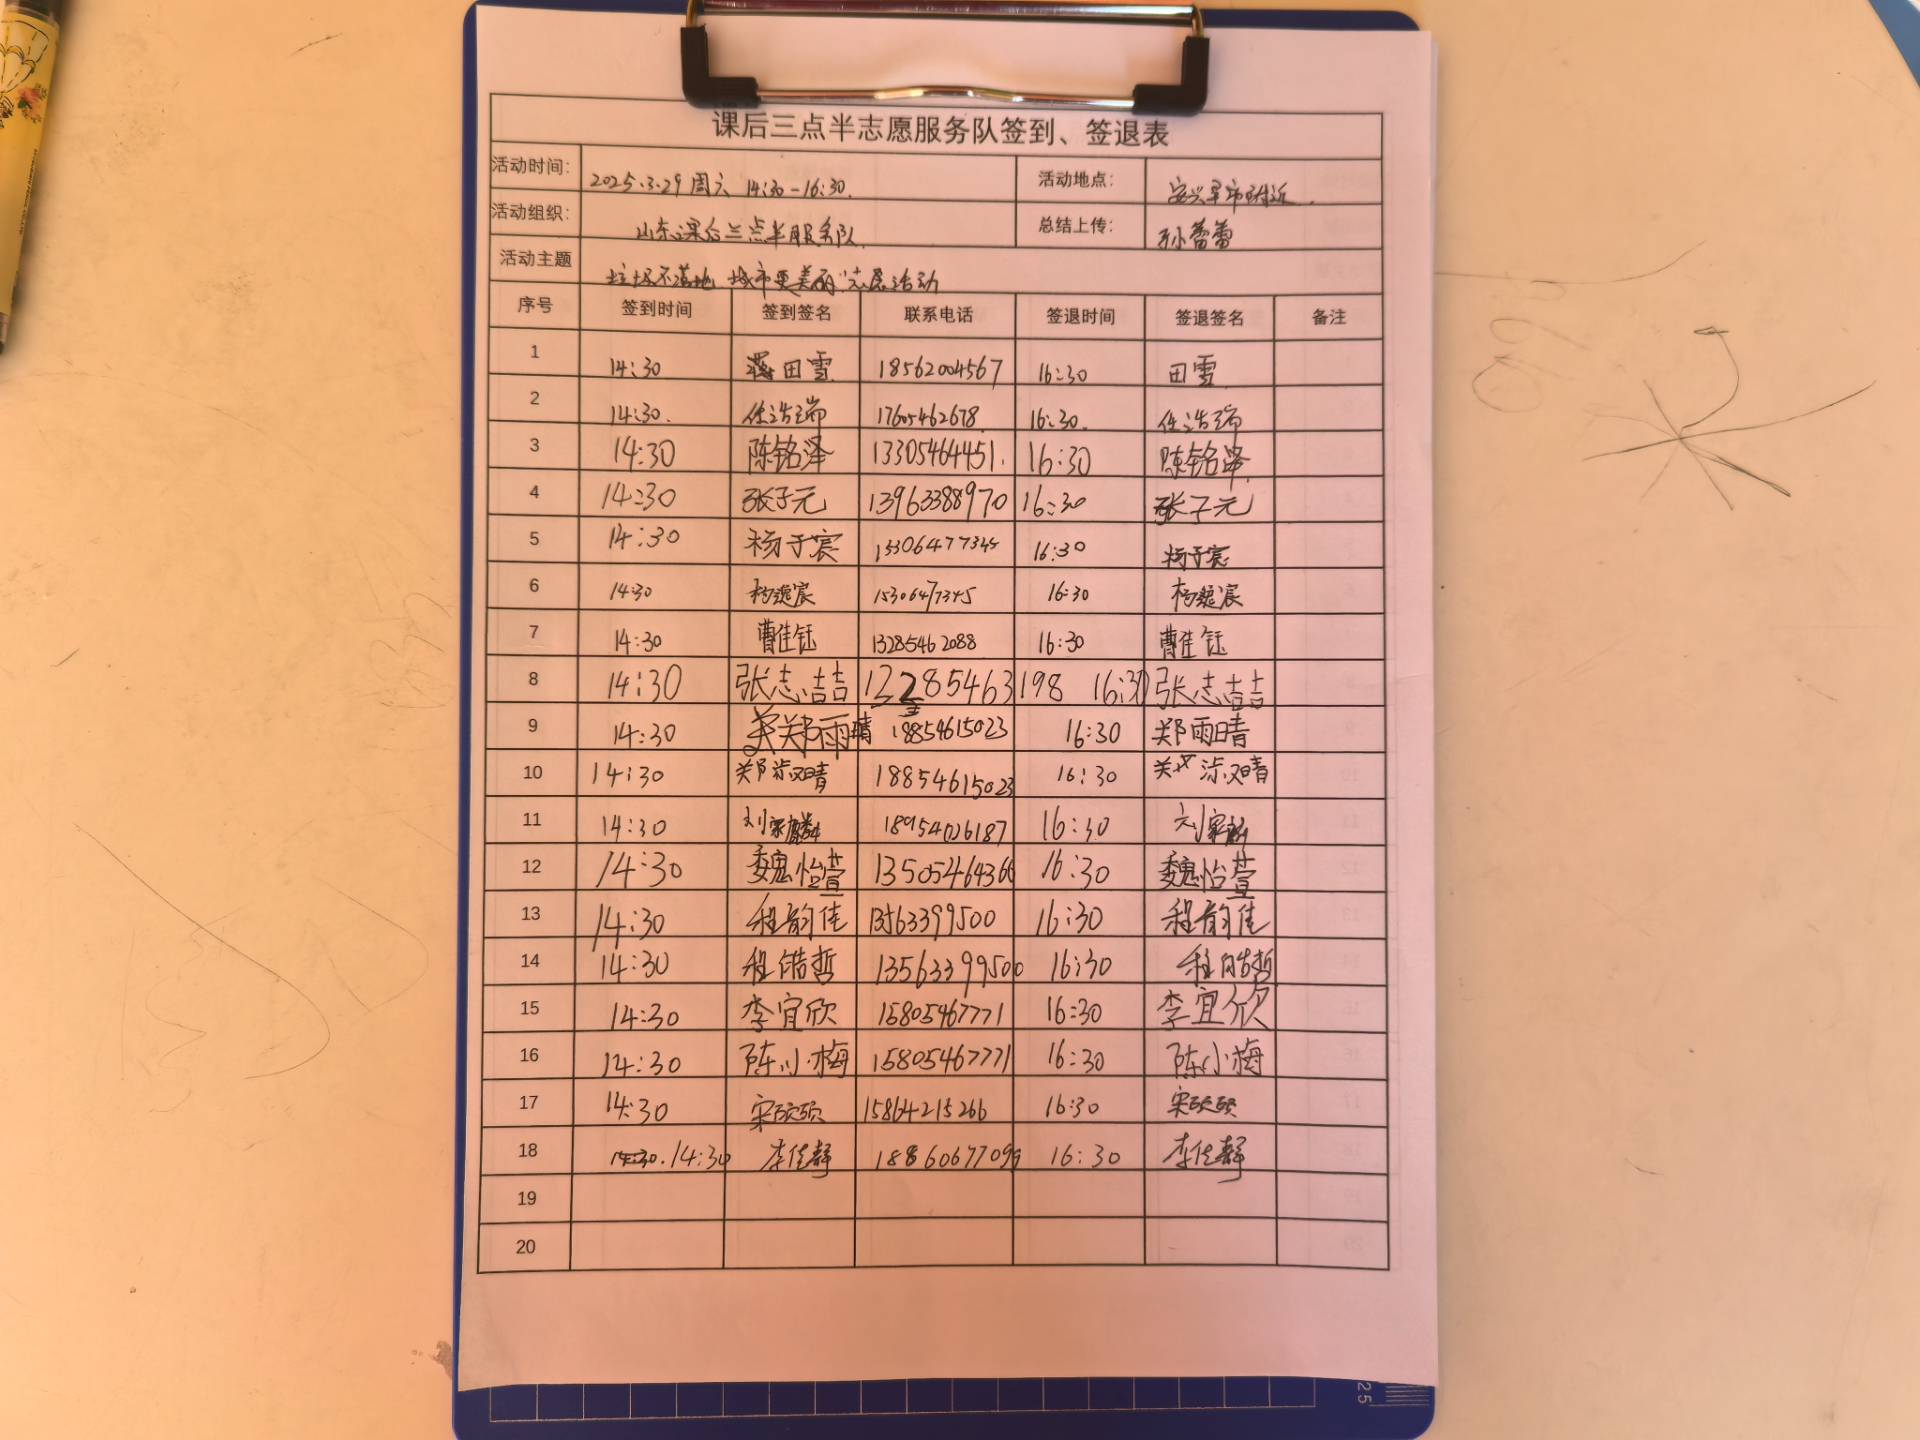 课后三点半志愿服务队签到、签退表
活动时间: 2025.3.29 周六 14:30-16:30. 活动地点: 安兴早市附近.
活动组织: 山东课后三点半服务队 总结上传: 孙蕾蕾
活动主题 垃圾不落地 城市更美丽"志愿活动
序号 签到时间 签到签名 联系电话 签退时间 签退签名 备注
1 14:30 田雪 18562004567 16:30 田雪
2 14:30. 任浩瑞 17605462678 16:30. 任浩瑞
3 14:30 陈铭泽 13305464451. 16:30 陈铭泽
4 14:30 张子元 13963388970 16:30 张子元
5 14:30 杨子宸 15306477345 16:30 杨子宸
6 14:30 杨逸宸 15306477345 16:30 杨逸宸
7 14:30 曹佳钰 13285462088 16:30 曹佳钰
8 14:30 张志喆 13285463198 16:30 张志喆
9 14:30 郑雨晴 18854615023 16:30 郑雨晴
10 14:30 郑添晴 18854615023 16:30 郑添晴
11 14:30 刘家麟 18954026187 16:30 刘家麟
12 14:30 魏怡萱 13505464366 16:30 魏怡萱
13 14:30 程韵佳 13563399500 16:30 程韵佳
14 14:30 程皓哲 13563399500 16:30 程皓哲
15 14:30 李宜欣 15805467771 16:30 李宜欣
16 14:30 陈小梅 15805467771 16:30 陈小梅
17 14:30 宋硕硕 15864215266 16:30 宋硕硕
18 14:30 李佳静 16:30 李佳静
19
20
25